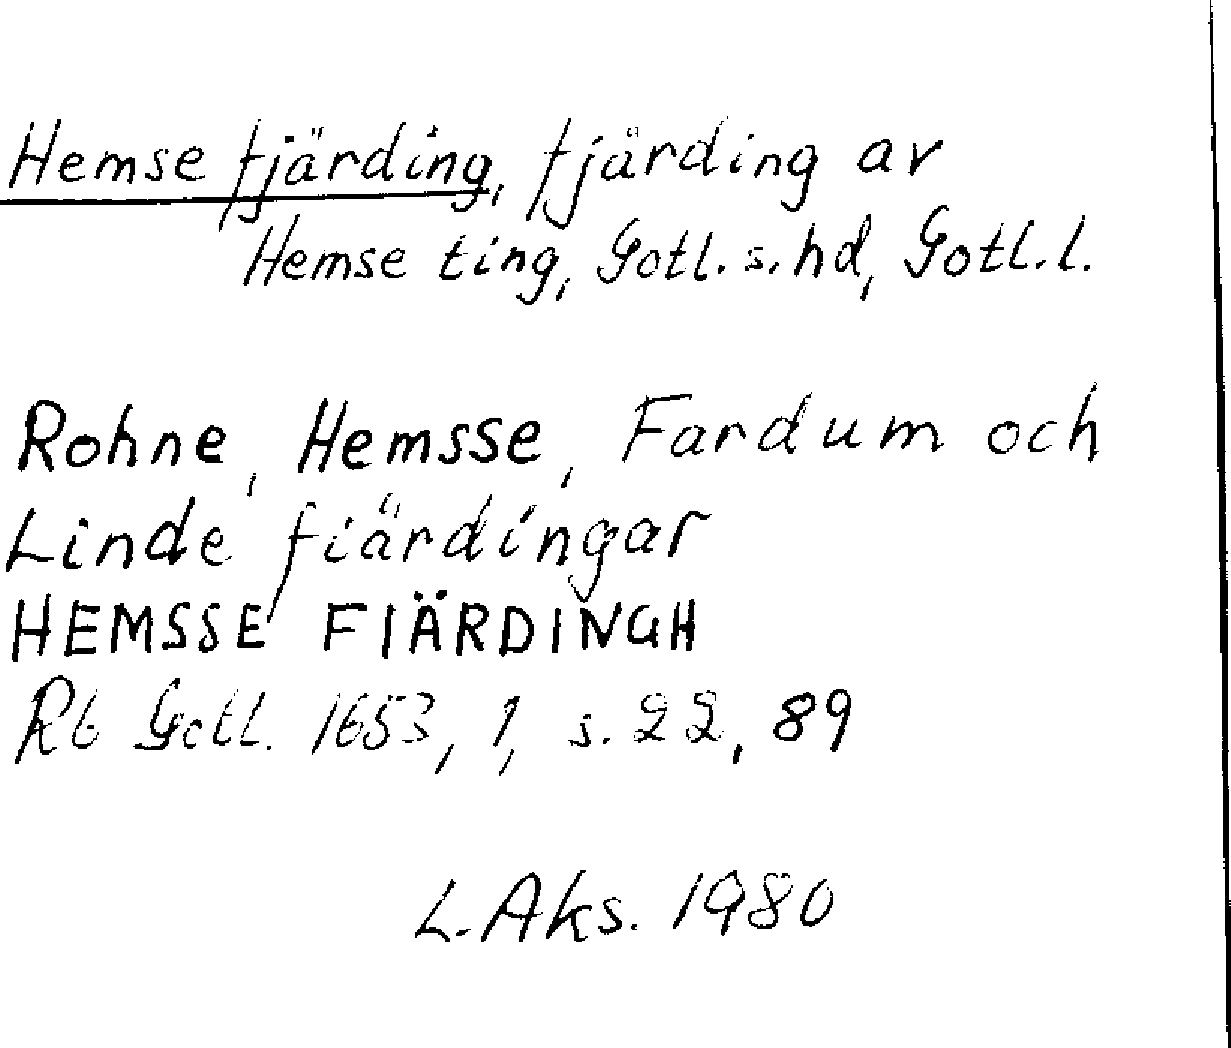 Hemse fjärding, fjärding av
Hemse ting, Gotl. s. hd, Gotl. l.
Rohne, Hemsse, Fardum och
Linde fiärdingar
HEMSSE FIÄRDINGH
Rb Gotl. 1653, 1, s. 22, 89
L. Aks. 1980